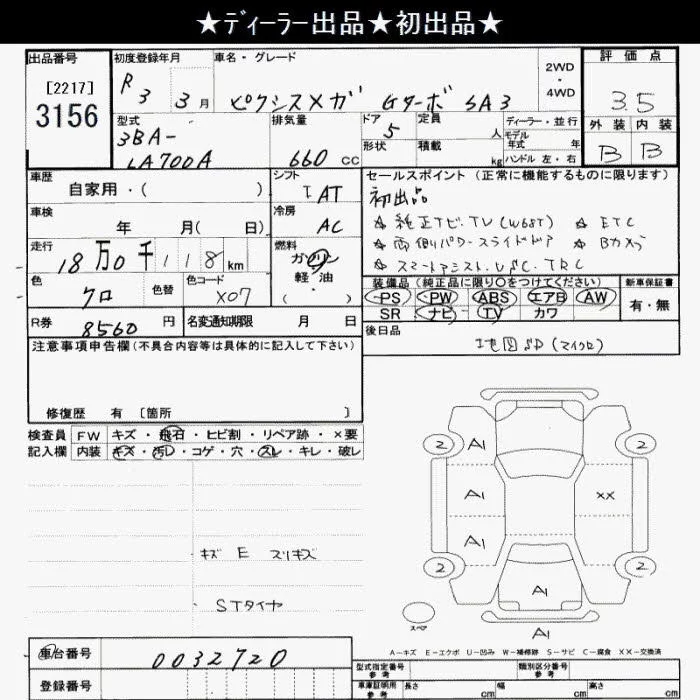 ★ディーラー出品★初出品★
出品番号 初度登録年月 車名・グレード 2WD・4WD 評価点
[2217]
3156
R3 3月 ピクシスメガ Gターボ SA3 3.5
型式 排気量 ドア 定員 人 ディーラー・並行 外装 内装
3BA-
LA700A 660cc 5 形状 積載 kg モデル年式 年 ハンドル 左・右 B B
車歴 自家用・( ) シフト IAT セールスポイント(正常に機能するものに限ります)
初出品
車検 年 月( 日) 冷房 AC
☆ 純正ナビ.TV(W68T) ☆ ETC
☆ 両側パワースライドドア ☆ Bカメラ
☆ スマートアシスト.VSC.TRC
走行 18万0千118km 燃料 ガソリン 軽・油 ・( )
色 クロ 色替 色コード X07
装備品(純正品に限り○をつけてください) 新車保証書
PS PW ABS エアB AW 有・無
SR ナビ TV カワ
R券 8560円 名変通知期限 月 日
後日品 地図SD(マイクロ)
注意事項申告欄(不具合内容等は具体的に記入して下さい)
修復歴 有 [箇所 ]
検査員 FW キズ・飛石・ヒビ割・リペア跡・×要
記入欄 内装 キズ・汚レ・コゲ・穴・スレ・キレ・破レ
2 A1 2
A1 XX
キズ E スリキズ A1
2 2
STタイヤ A1
スペア A1
A-キズ E-エクボ U-凹み W-補修跡 S-サビ C-腐食 XX-交換済
車台番号 0032720
型式指定番号 参考 類別区分番号 参考
登録番号 車庫証明用 参考 長さ cm 幅 cm 高さ cm